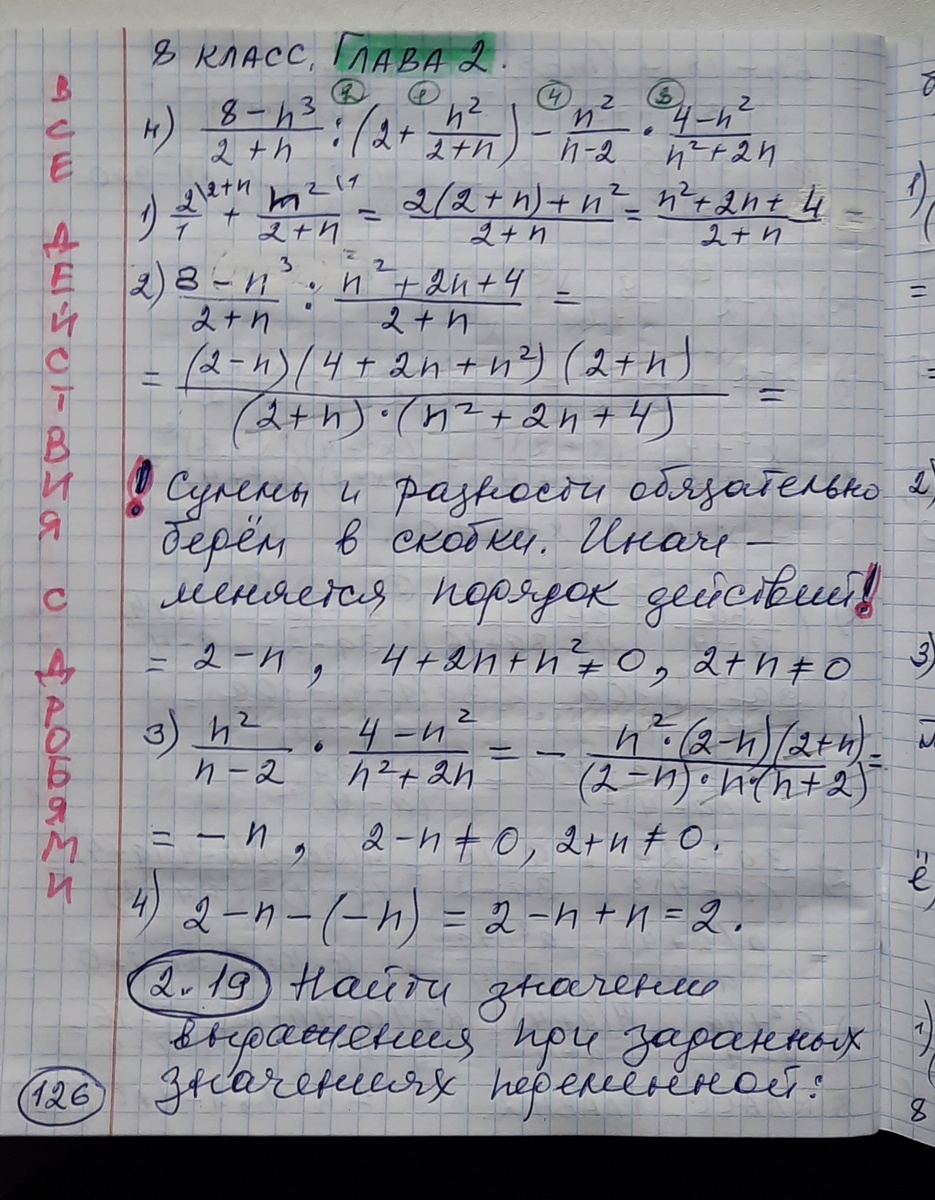 8 КЛАСС. ГЛАВА 2.
н) (8-n³)/(2+n) : (2 + n²/(2+n)) - n²/(n-2) · (4-n²)/(n²+2n)
② ① ④ ③
1) 2/1 \2+n + n²/(2+n) \1 = (2(2+n)+n²)/(2+n) = (n²+2n+4)/(2+n) =
2) (8-n³)/(2+n) : (n²+2n+4)/(2+n) =
= ((2-n)(4+2n+n²)(2+n))/((2+n)·(n²+2n+4)) =
! Суммы и разности обязательно
берём в скобки. Иначе -
меняется порядок действий!
= 2-n, 4+2n+n²≠0, 2+n≠0
3) n²/(n-2) · (4-n²)/(n²+2n) = - (n²·(2-n)(2+n))/((2-n)·n·(n+2)) =
= -n, 2-n≠0, 2+n≠0.
4) 2-n-(-n) = 2-n+n = 2.
2.19 Найти значение
выражения при заданных
значениях переменной:
ВСЕ ДЕЙСТВИЯ С ДРОБЯМИ
126
1)
(
=
=
2)
3)
1)
8